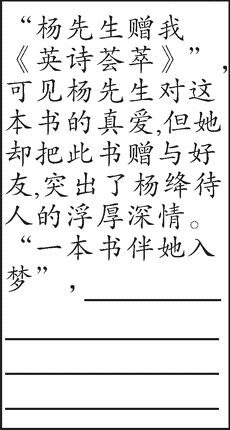 “杨先生赠我
《英诗荟萃》”,
可见杨先生对这
本书的真爱,但她
却把此书赠与好
友,突出了杨绛待
人的浮厚深情。
“一本书伴她入
梦”,